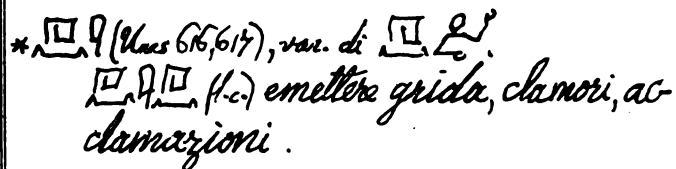 * 𓉔𓇋 (Unas 616, 617), var. di 𓉔𓀠.
𓉔𓇋𓉔 (l.c.) emettere grida, clamori, ac-
clamazioni.